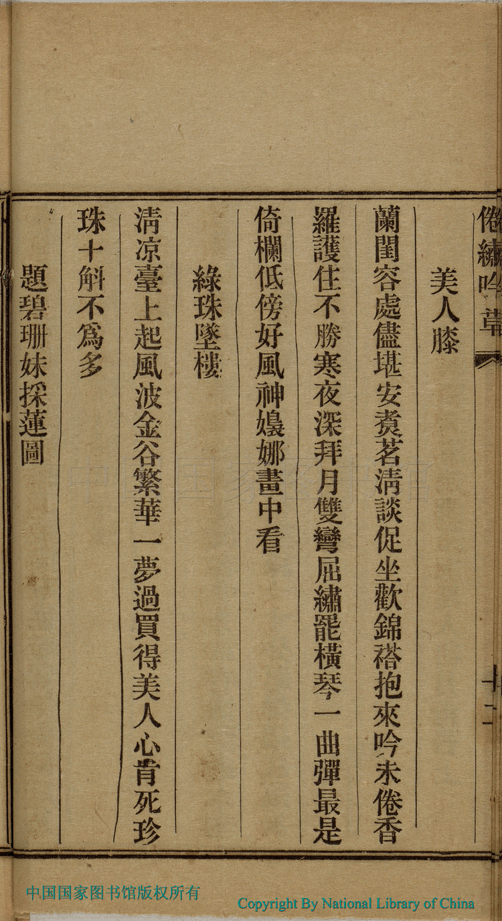 倦繡吟草
十二
美人膝
蘭閨容處儘堪安煑茗淸談促坐歡錦褡抱來吟未倦香
羅護住不勝寒夜深拜月雙彎屈繡罷橫琴一曲彈最是
倚欄低傍好風神嬝娜畫中看
綠珠墜樓
淸凉臺上起風波金谷繁華一夢過買得美人心肯死珍
珠十斛不爲多
題碧珊妹採蓮圖
中国国家图书馆版权所有
Copyright By National Library of China